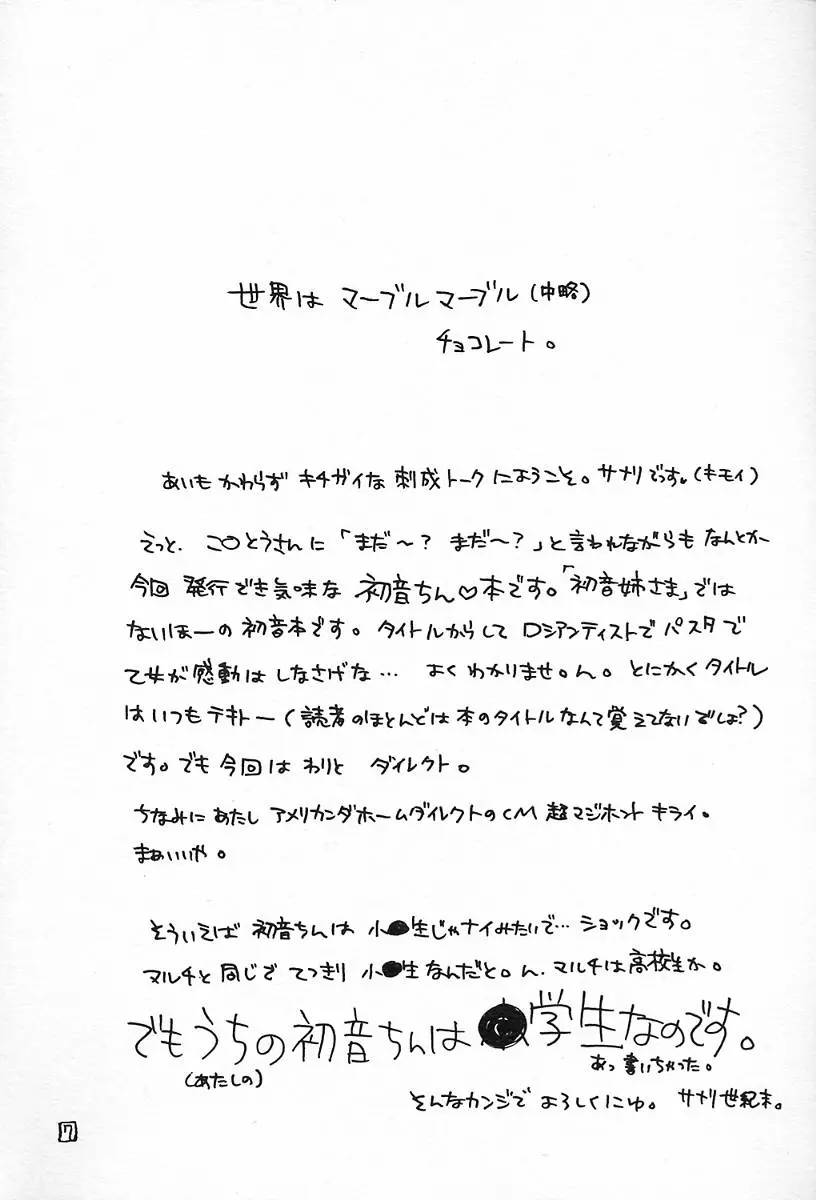 世界は マーブルマーブル(中略)
チョコレート。
あいもかわらず キチガイな 刺成トークにようこそ。サメリでっす。(キモイ)
えっと、こ○とうさんに「まだ〜？ まだ〜？」と言われながらも なんとか
今回 発行でき気味な 初音ちん♡本です。「初音姉さま」では
ないほーの初音本です。タイトルからして ロシアンティストで パスタで
乙女が感動は しなさげな… よく わかりませ。ん。とにかくタイトル
はいつもテキトー(読者のほとんどは本のタイトルなんて覚えてないでしょ？)
です。でも今回は わりと ダイレクト。
ちなみに あたし アメリカンダホームダイレクトのCM 超マジホント キライ。
まぁいいや。
そういえば 初音ちんは 小●生じゃナイみたいで… ショックです。
マルチと同じで てっきり 小●生なんだと。ん、マルチは高校生か。
でもうちの初音ちんは ●学生なのです。
(あたしの)
あっ書いちゃった。
そんなカンジで よろしくにゅ。 サメリ世紀末。
7